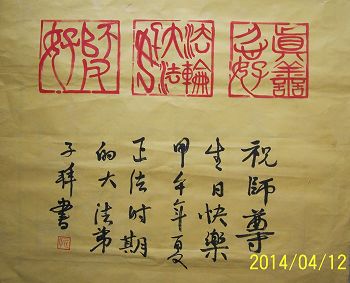 眞善忍好
法輪大法好
師父好
祝師尊
生日快樂
甲午年夏
正法时期
的大法弟
子拜書
2014/04/12